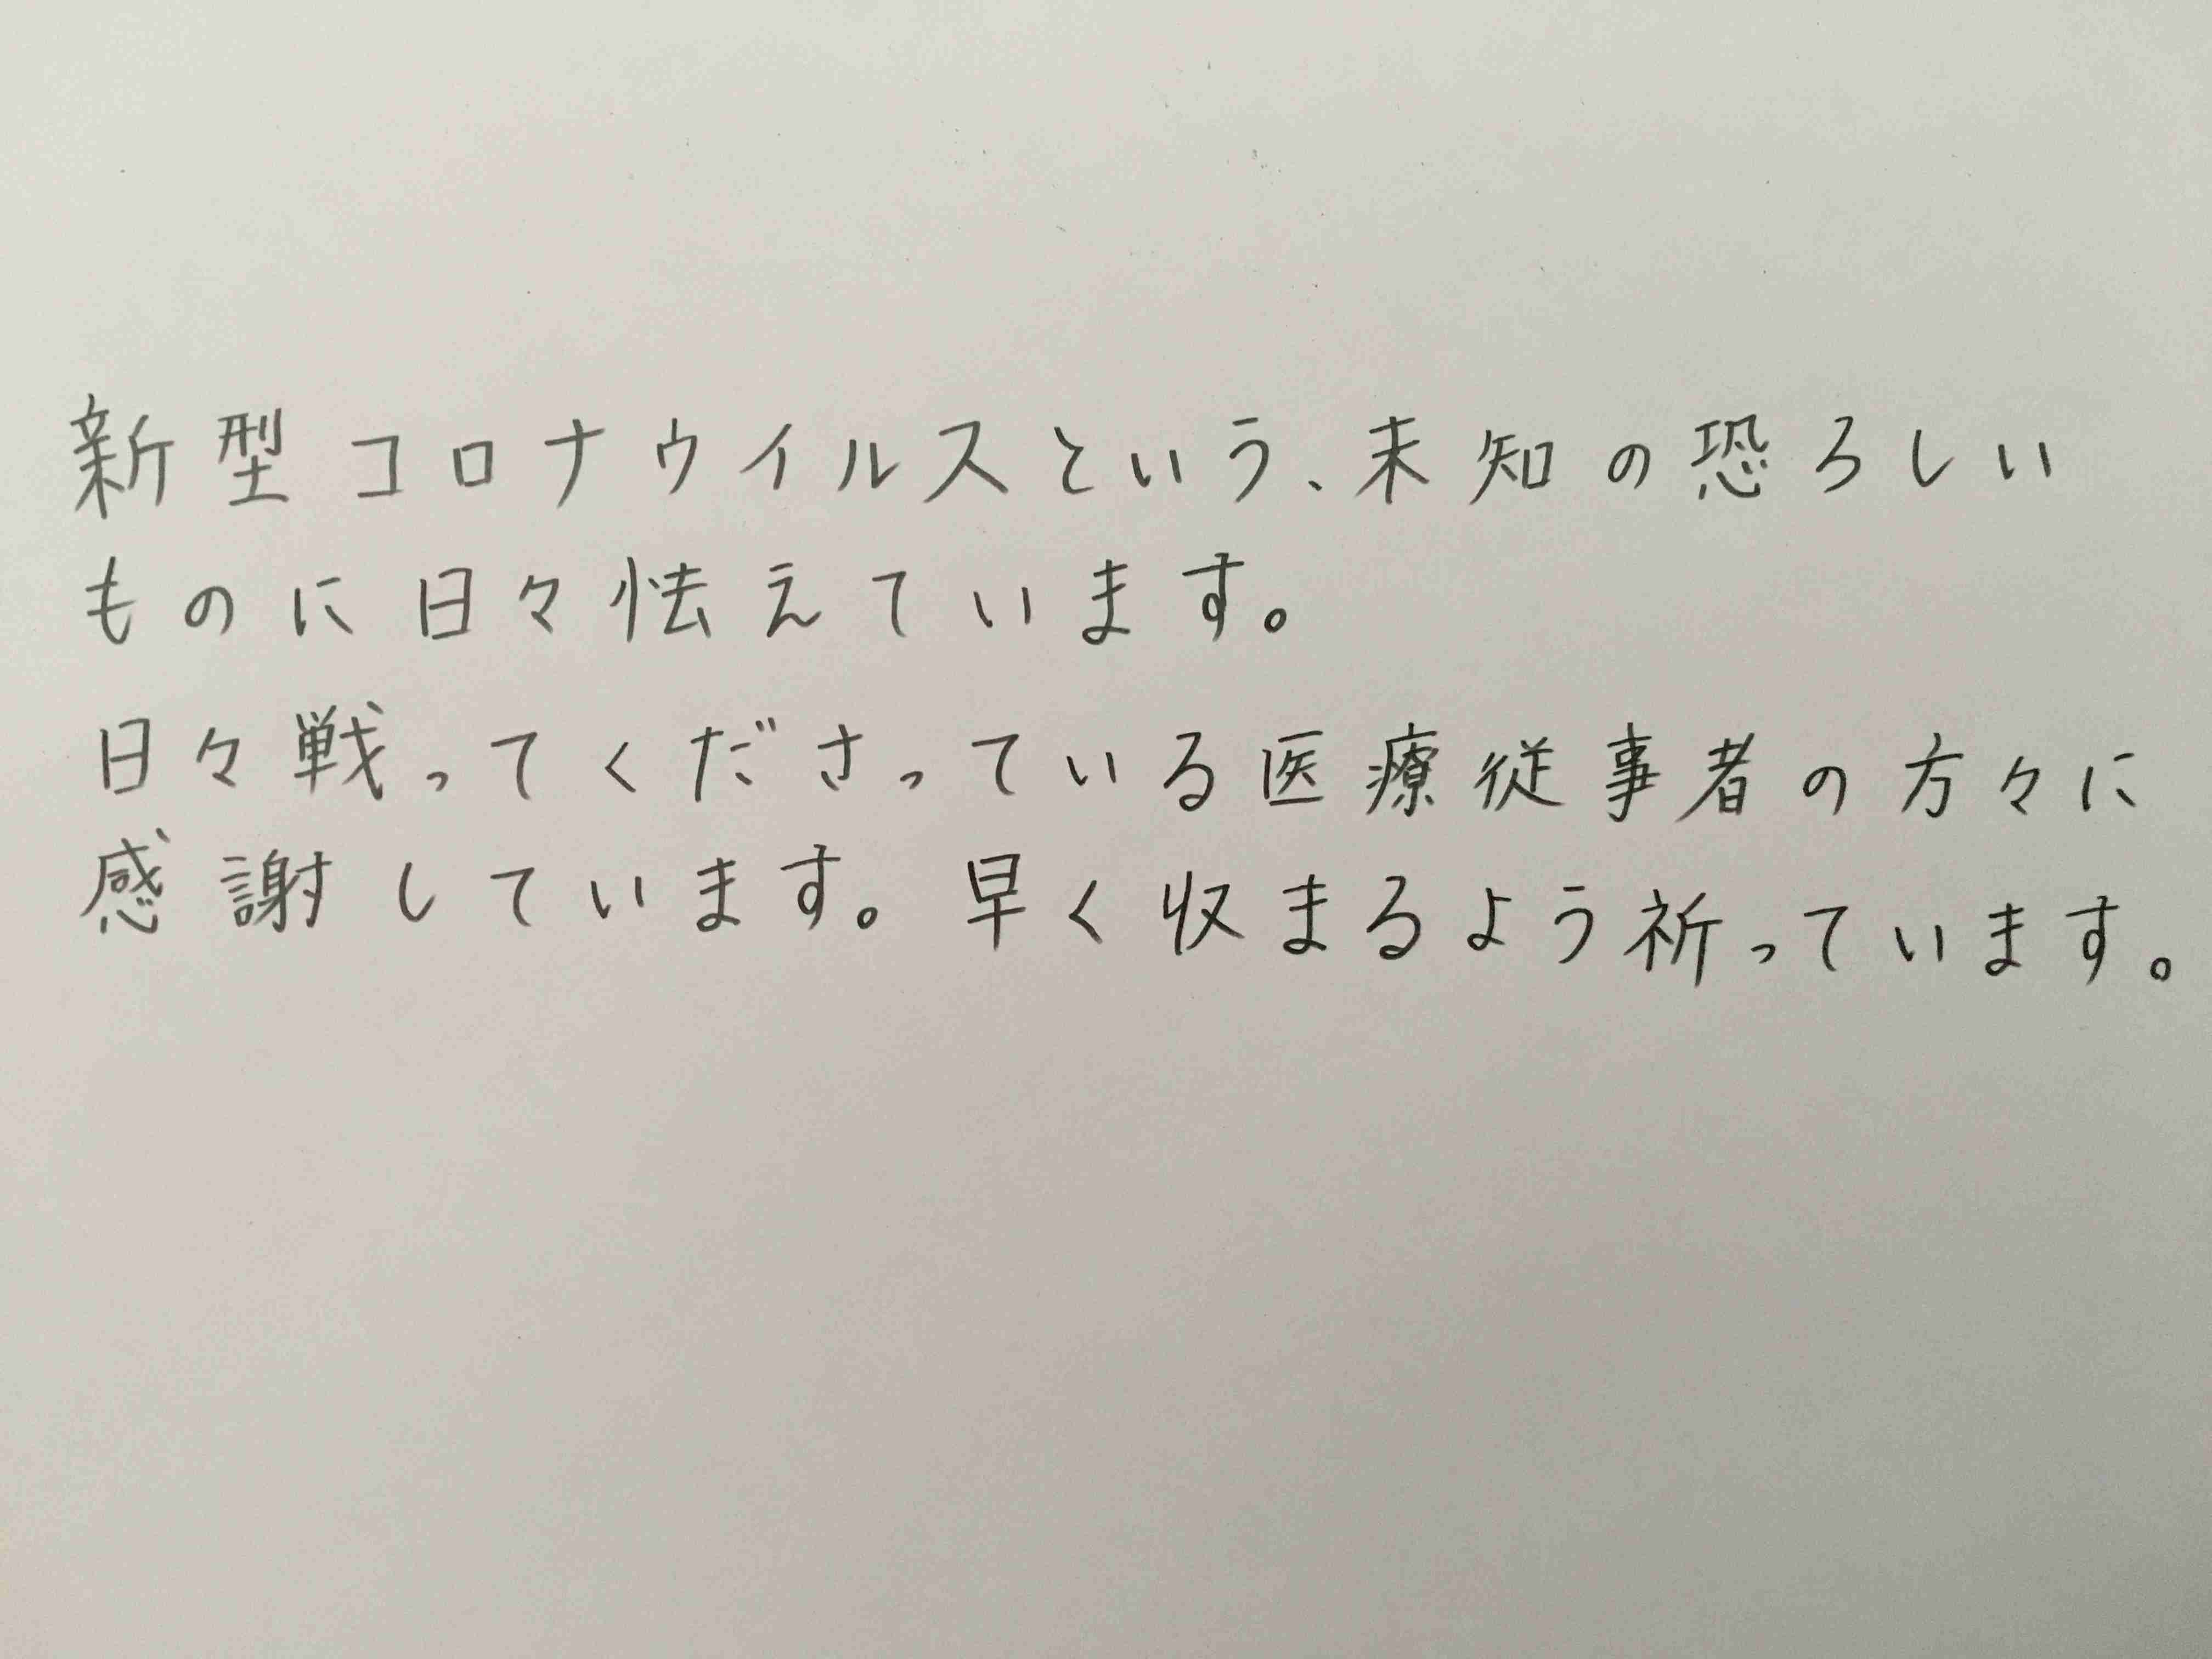 新型コロナウイルスという、未知の恐ろしい
ものに日々怯えています。
日々戦ってくださっている医療従事者の方々に
感謝しています。早く収まるよう祈っています。